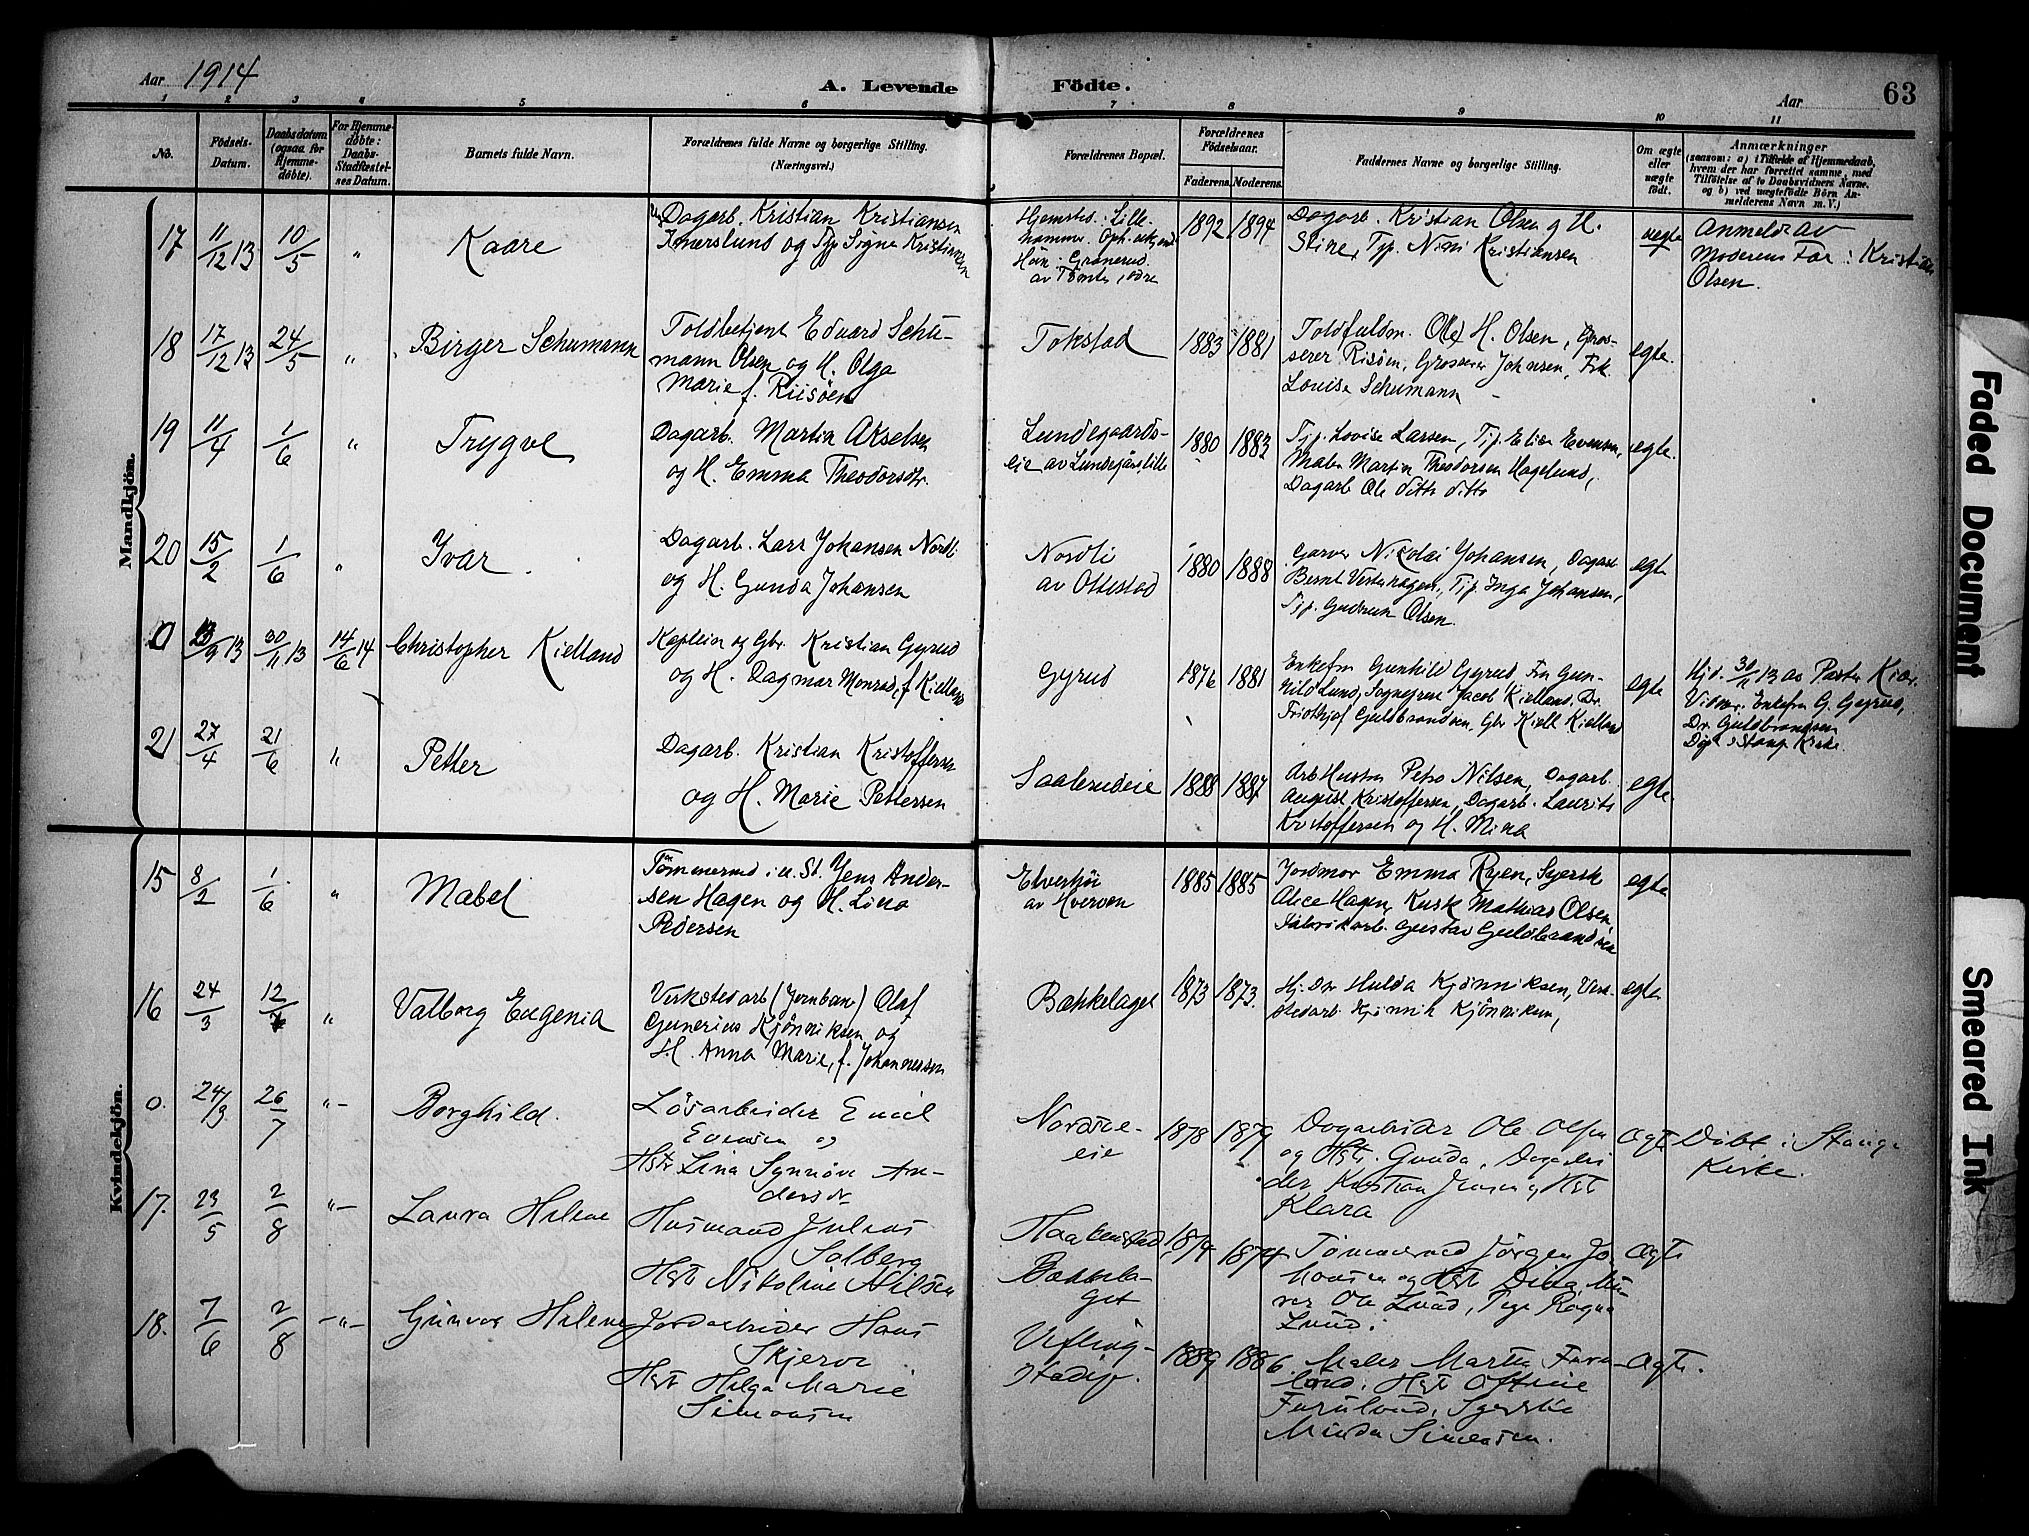 Aar 1914
A. Levende Födte.
Aar
63
1 2 3 4 5 6 7 8 9 10 11
No.
Födsels-
Datum.
Daabsdatum
(ogsaa for
Hjemme-
döbte).
For Hjemme-
döbte:
Daabs-
Stadfæstel-
ses Datum.
Barnets fulde Navn.
Forældrenes fulde Navne og borgerlige Stilling.
(Næringsvei.)
Forældrenes Bopæl.
Forældrenes
Födselsaar.
Faderens. Moderens.
Faddernes Navne og borgerlige Stilling.
Om ægte
eller
uægte
født.
Anmærkninger
(saasom: a) i Tilfælde af Hjemmedaab,
hvem der har forrettet samme, med
Tilföielse af to Daabsvidners Navne,
og b) ved uægtefödte Börn An-
melderens Navn m. V.)
Mandkjön.
17 11/12 13 10/5 " Kaare
Dagarb. Kristian Kristiansen
og Tjp Signe Kristiansen
Hjemsted: Lille-
hammer.
av Tomter, østre
1892 1894
Dagarb. Kristian Olsen og H.
Stine, Tjp. Kristiansen
uegte
Anmeldt av
Moderens Far: Kristian
Olsen.
18 17/12 13 24/5 " Birger Schumann
Toldbetjent Edvard Schu-
mann Olsen og H. Olga
Marie f. Riisøen
Tokstad
1883 1881
Toldfuldm. Olef H. Olsen, Gros-
serer Risøen, Grosserer Johansen, Frk.
Louise Schumann
egte.
19 11/4 1/6 " Trygve
Dagarb. Martin Akselsen
og H. Emma Theodorsdtr.
Lundegaards-
eie av Lundegård, lille
1880 1883
Tjp. Lovise Larsen, Tjp. Elise Evensen,
Maler Martin Theodorsen Hagelund,
Dagarb Ole ditto ditto
egte.
20 15/2 1/6 " Ivar
Dagarb. Lars Johansen Nordli
og H. Gunda Johansen
Nordli
av Ottestad
1880 1888
Garver Nikolai Johansen, Dagarb
Bernt Vestahagen, Tjp. Inga Johansen,
Tjp. Gudrun Olsen.
egte
0 9 13 30/11 13 14/6 14 Christopher Kielland
Kaptein og Gbr. Kristian Gyrud
og H. Dagmar Monrad, f. Kielland
Gyrud
1876 1881
Enkefru Gunhild Gyrud, Fru Gun-
hild Lund, Sogneprest Jacob Kielland, Dr.
Fridthjof Guldbrandsen, Gbr Kiell Kielland
egte
Hjd. 30/11 13 av Pastor Kiær.
Vidner: Enkefru G. Gyrud,
Dr. Guldbrandsen
Døpt i Stange Kirke.
21 27/4 21/6 " Petter
Dagarb. Kristian Kristoffersen
og H. Marie Pettersen
Saalerudeie
1888 1887
Arb Hustru Petra Nilsen, Dagarb.
August Kristoffersen, Dagarb. Laurits
Kristoffersen og H. Mina
egte
Kvindekjön.
15 8/2 1/6 " Mabel
Tømmermd i u. St. Jens Ander-
sen Hagen og H. Lina
Pedersen
Elverhöi
av Hverven
1885 1885
Jordmor Emma Ryen, Syersk
Alice Hagen, Kusk Mathias Olsen
Fabrikarb. Gustav Guldbrandsen
egte
16 24/3 12/7 " Valborg Eugenia
Verkstedarb (Jernban) Olaf
Gunerius Kjønniksen og
H. Anna Marie, f. Johannessen
Bækkelaget
1873 1873.
Hj. Dtr Hulda Kjønniksen, Verk-
stedarb. Kjønniksen,
egte
0. 24/3 26/7 "- Borghild.
Løsarbeider Emil
Evensen og
Hst Lina Synnöve An-
dersdr
Nordsve-
eie
1878 1879
Dagarbeider Ole Olsen
og Hst. Gunda. Dagarbei
der Kristian Jensen og Hst
Klara
Ægte
Döbt i Stange
Kirke.
17. 23/5 2/8 "- Laura Helene
Husmand Julius
Solberg
Hst Nikoline Nilsen
Haakenstad
Bækkela-
get
1874 1874
Tømmermd Jörgen Jo
hansen og Hst Dina, Mu-
rer Ole Lund, Tjp Ragna
Lund.
Ægte
18. 7/6 2/8 -"- Gunvor Helene
Jordarbeider Hans
Skjerve
Hst Helga Marie
Simensen
Vefling-
stadeje.
1889 1886
Maler Martin Furu-
lund. Hst Oftine
Furulund, Syerske
Minda Simensen.
Ægte.
Faded Document
Smeared Ink